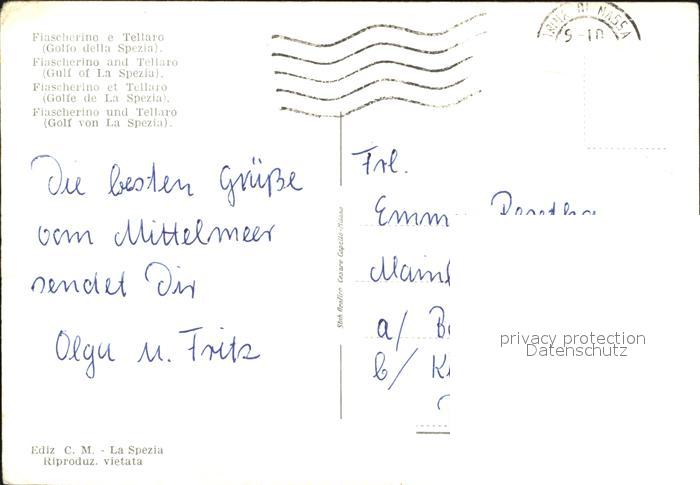 Fiascherino e Tellaro
(Golfo della Spezia).
Fiascherino and Tellaro
(Gulf of La Spezia).
Fiascherino et Tellaro
(Golfe de La Spezia).
Fiascherino und Tellaro
(Golf von La Spezia).
Die besten Grüße
vom Mittelmeer
sendet Dir
Olga u. Fritz
Ediz C. M. - La Spezia
Riproduz. vietata
Cesare Capelli-Milano
MARINA DI MASSA
Frl.
Emm
a/ B
b/ K
privacy protection
Datenschutz